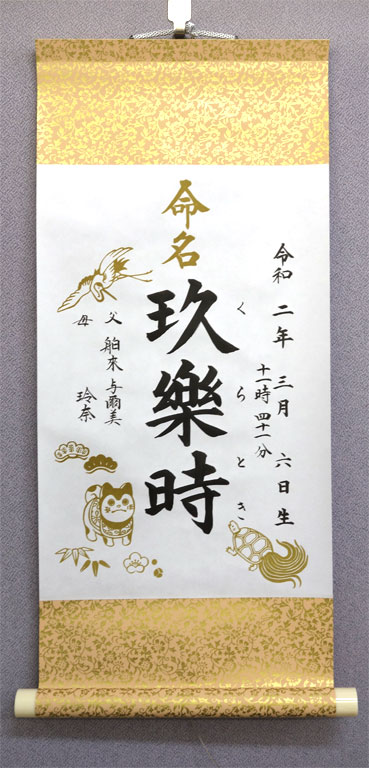 命名
令和二年三月六日生
十一時四十一分
くらとき
玖樂時
父 舶來 与爾美
母 玲奈